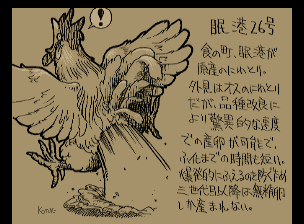 !
眠港26号
食の町、眠港が
原産のにわとり。
外見はオスのにわとり
だが、品種改良に
より驚異的な速度
での産卵が可能で、
ふ化までの時間も短い。
爆発的にふえるのを防ぐため
三世代目以降は無精卵
しか産まれない。